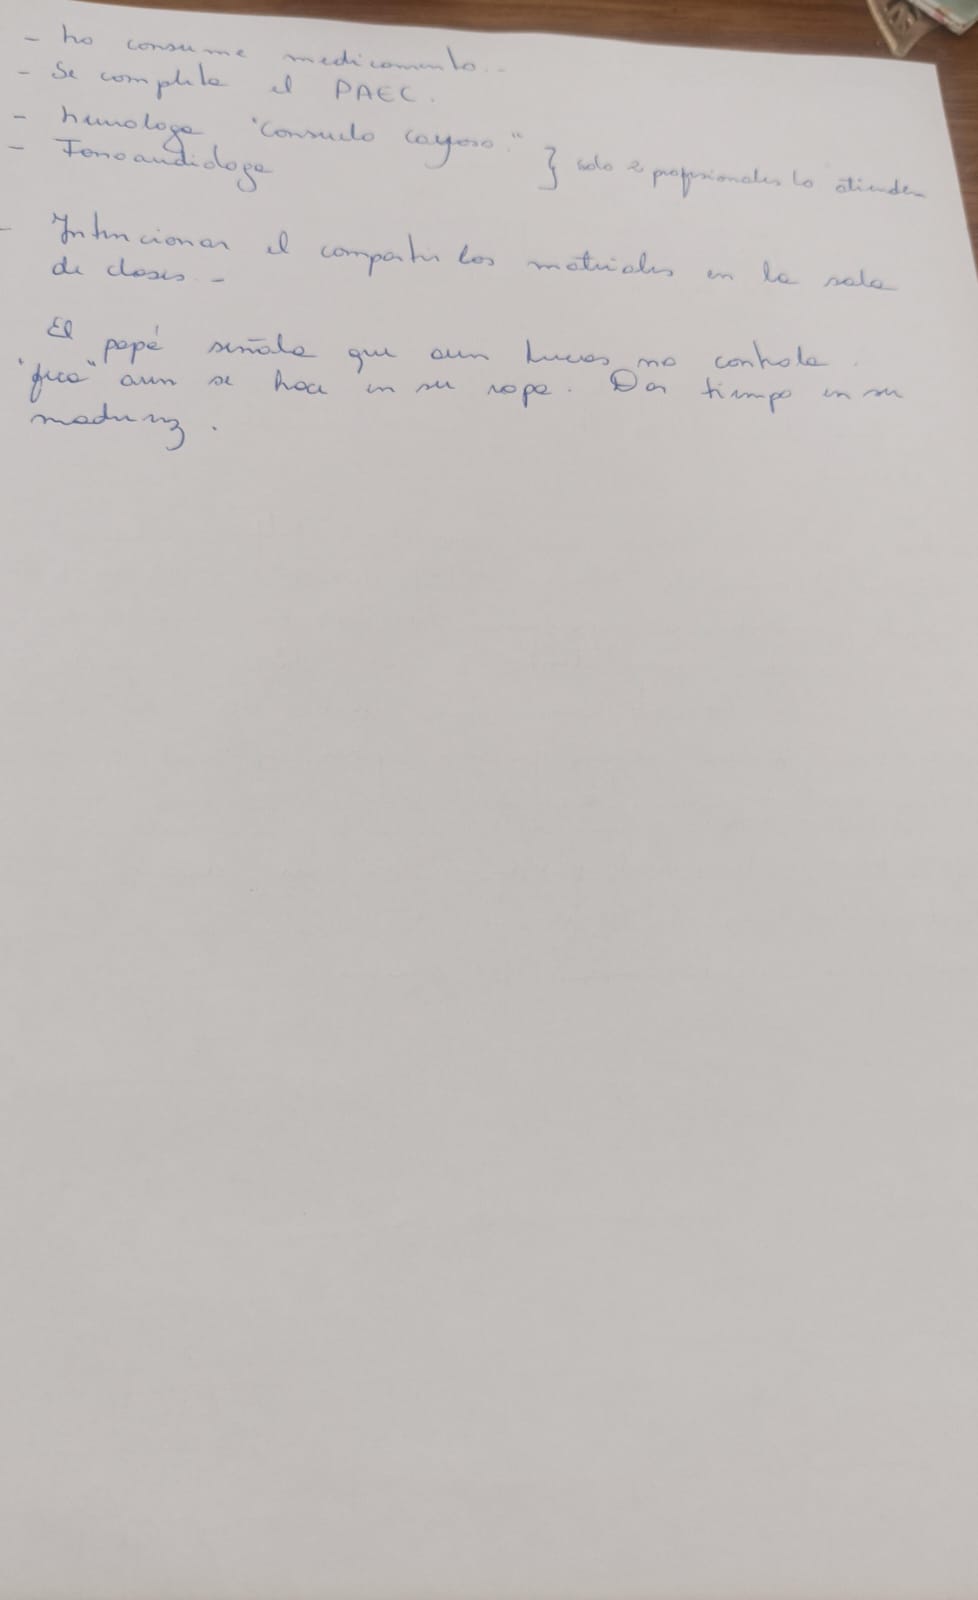 - No consume medicamento..
- Se completa el PAEC.
- Neurologa "Consuelo Cayoso."
- Fonoaudiologa } solo 2 profesionales lo atienden
- Intencionar el compartir los materiales en la sala
de clases. -
El papá señala que aun Lucas no controla.
"feca" aun se hace en su ropa. Dar tiempo en su
madurez.